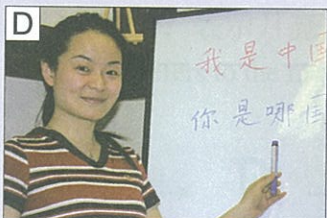 D
我是中国
你是哪国